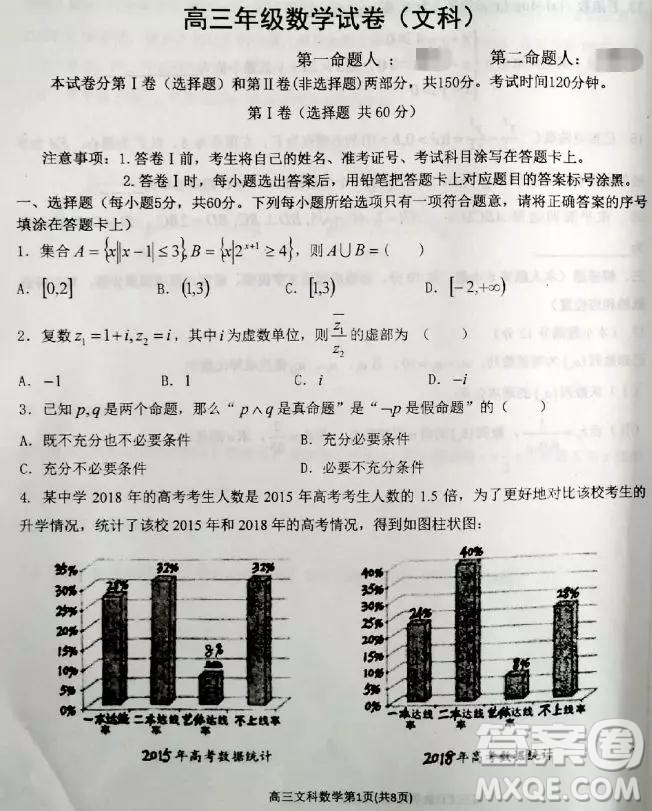 高三年级数学试卷（文科）
第一命题人： 第二命题人：
本试卷分第Ⅰ卷（选择题）和第Ⅱ卷(非选择题)两部分，共150分。考试时间120分钟。
第Ⅰ卷（选择题 共60分）
注意事项：1.答卷Ⅰ前，考生将自己的姓名、准考证号、考试科目涂写在答题卡上。
2.答卷Ⅰ时，每小题选出答案后，用铅笔把答题卡上对应题目的答案标号涂黑。
一、选择题（每小题5分，共60分。下列每小题所给选项只有一项符合题意，请将正确答案的序号
填涂在答题卡上）
1．集合 A={x||x−1|≤3},B={x|2^{x+1}≥4}，则 A∪B=（ ）
A．[0,2] B．(1,3) C．[1,3) D．[−2,+∞)
2．复数 z₁=1+i,z₂=i，其中 i 为虚数单位，则 \overline{z₁}/z₂ 的虚部为 （ ）
A．−1 B．1 C．i D．−i
3．已知 p,q 是两个命题，那么“ p∧q 是真命题”是“¬p 是假命题”的（ ）
A．既不充分也不必要条件 B．充分必要条件
C．充分不必要条件 D．必要不充分条件
4．某中学 2018 年的高考考生人数是 2015 年高考考生人数的 1.5 倍，为了更好地对比该校考生的
升学情况，统计了该校 2015 年和 2018 年的高考情况，得到如图柱状图：
35%
30%
25%
20%
15%
10%
5%
0%
28% 32% 8% 32%
一本达线率 二本达线率 艺体达线率 不上线率
2015年高考数据统计
40%
35%
30%
25%
20%
15%
10%
5%
0%
24% 40% 8% 28%
一本达线率 二本达线率 艺体达线率 不上线率
2018年高考数据统计
高三文科数学第1页(共8页)
作业帮